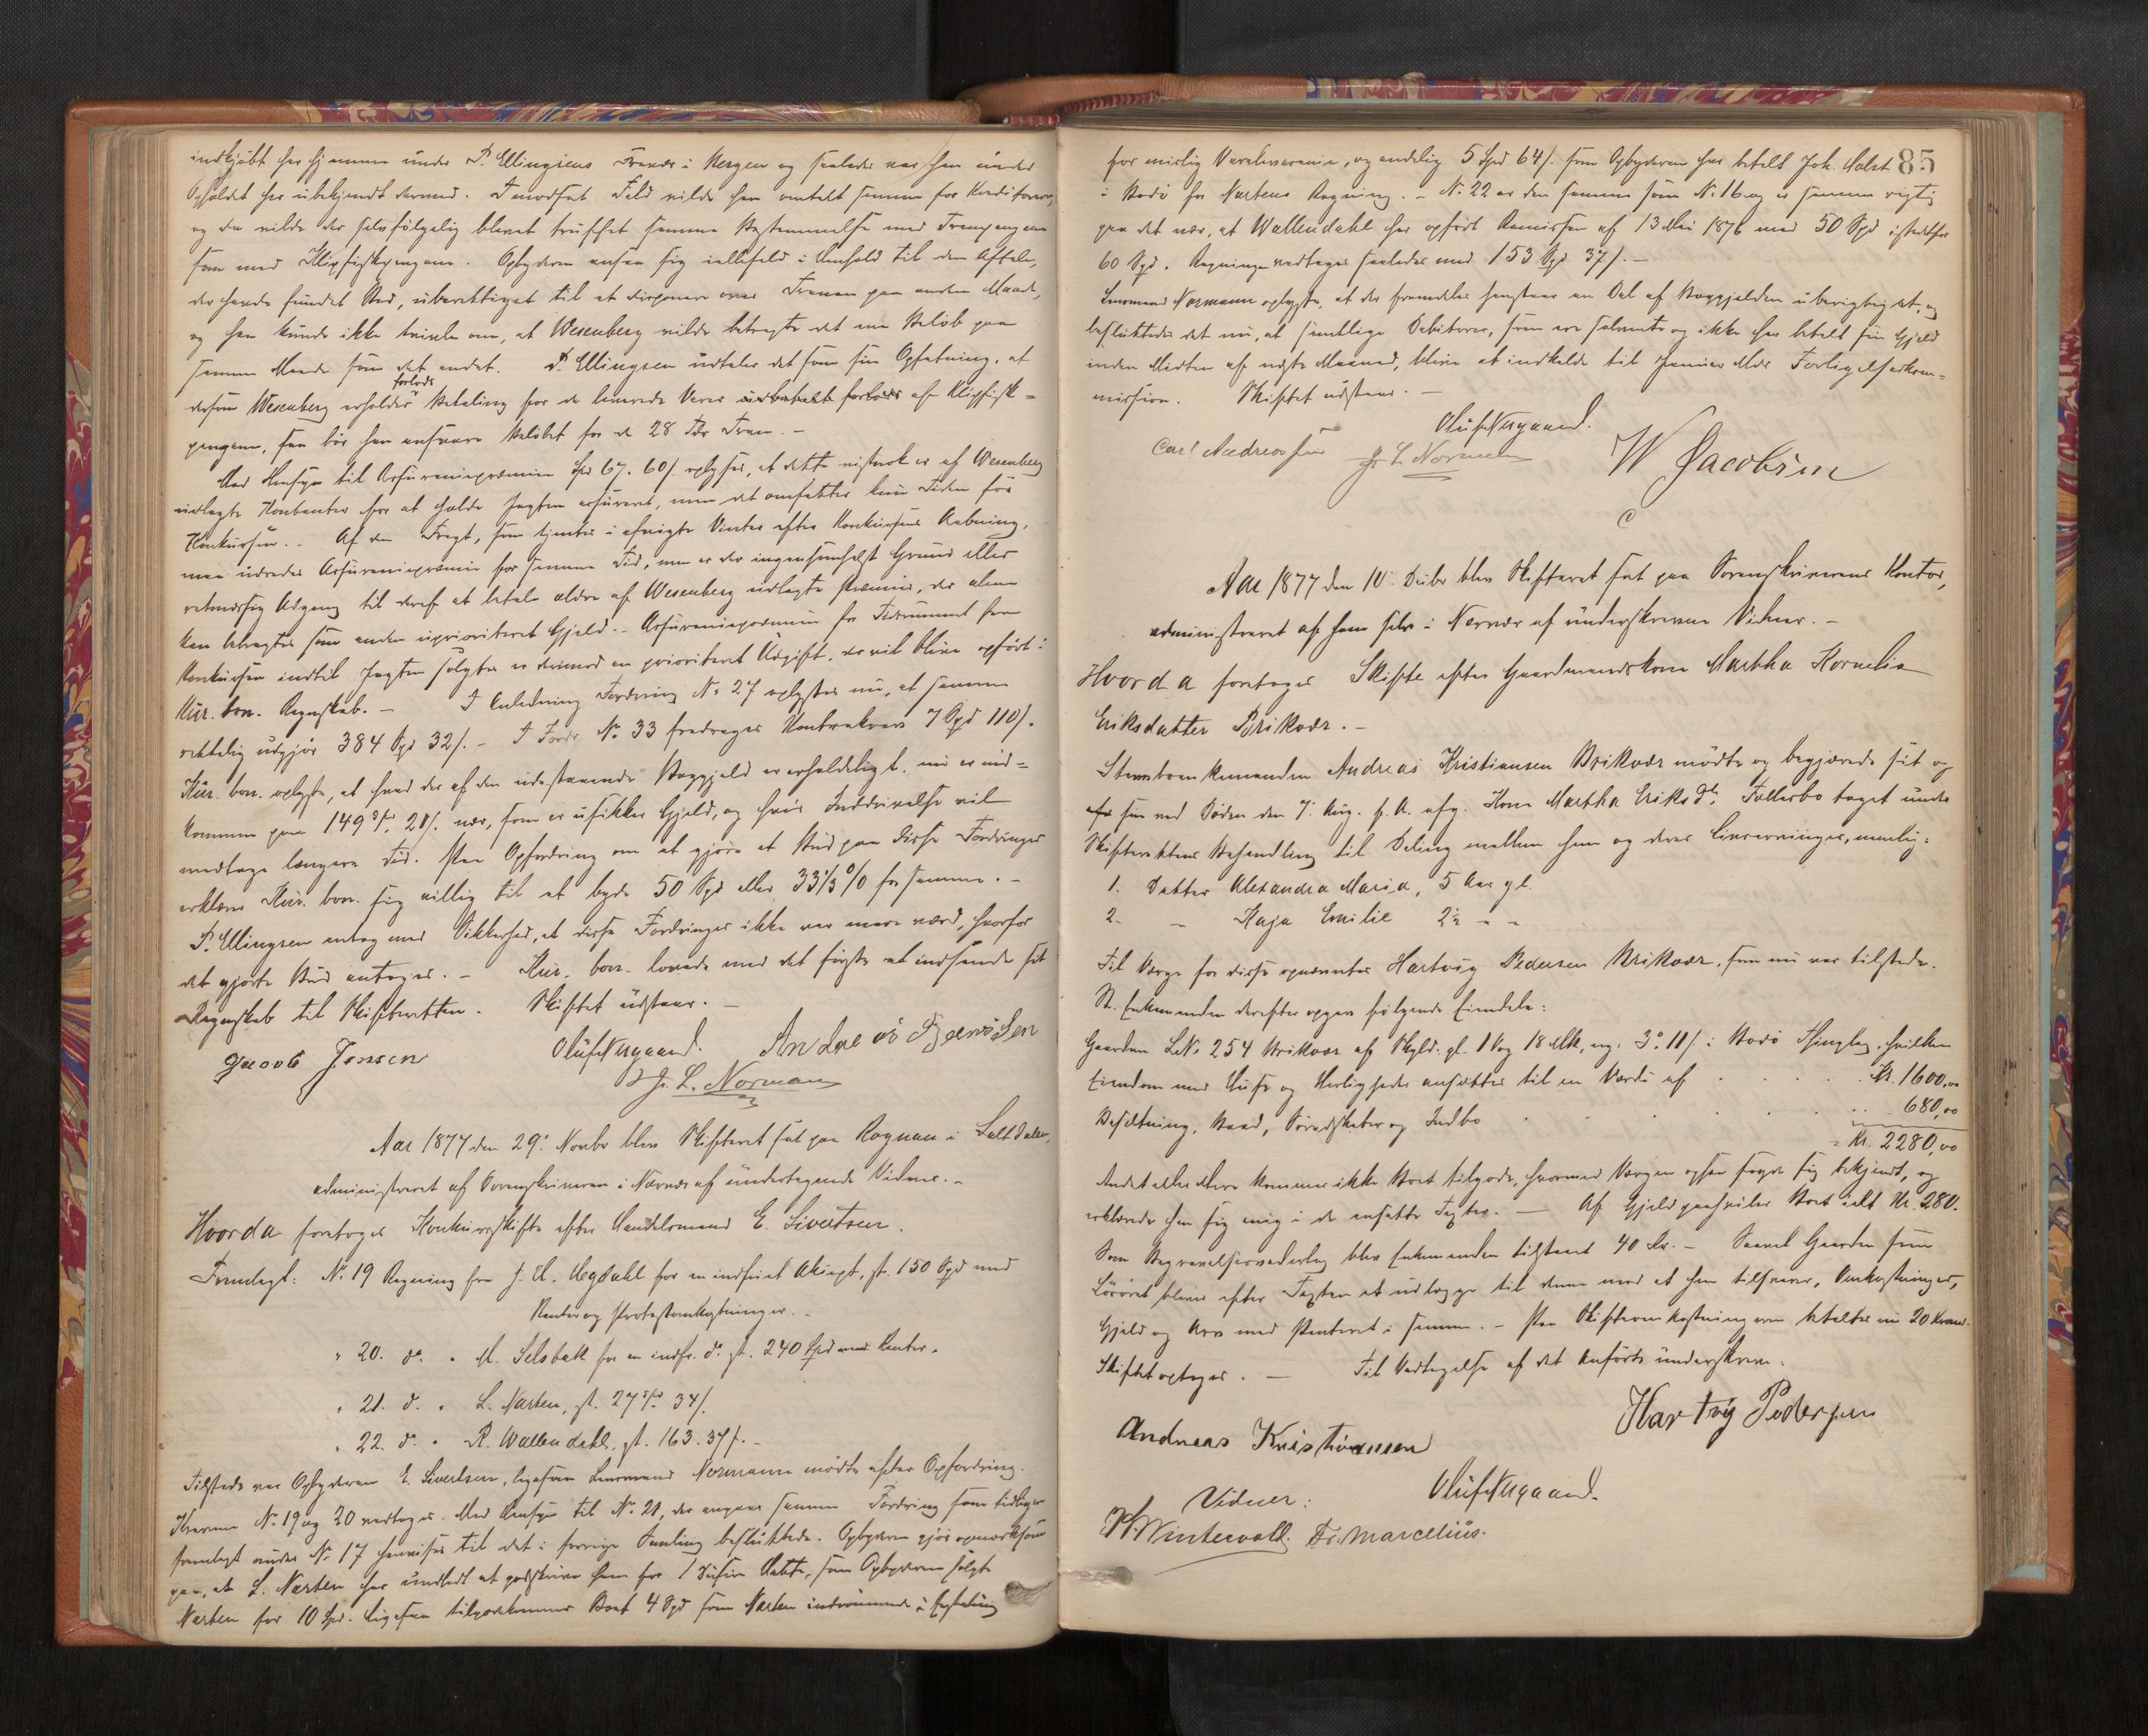 indkjøbt her hjemme under P. Ellingsens Fravær i Bergen og saaledes var han under
Opholdet her ubekjendt dermed. I modsat Fald vilde han omtalt samme for Kreditorerne,
og da vilde der selvfølgelig blevet truffet samme Bestemmelse med Tranpengene
som med Klipfiskpengene. Opbyderen ansaa sig ialfald i Henhold til den Aftale,
der havde fundet Sted, uberettiget til at disponere over Tranen paa anden Maade,
og han kunde ikke tvivle om, at Wesenberg vilde betragte det ene Beløb paa
samme Maade som det andet. P. Ellingsen udtaler det som sin Opfatning, at
forlods
dersom Wesenberg erholder Betaling for de leverede Varer udbetalt forlods af Klipfisk-
pengene, saa bør han ansvare Beløbet for de 28 Tdr Tran. -
Med Hensyn til Assurancepræmie Spd 67. 60 s. oplyses, at dette vistnok er af Wesenberg
udlagte Kontanter for at holde Jagten assureret, men det omfatter kun Tiden før
Konkursen. - Af den Fragt, som tjentes i afvigte Vinter efter Konkursens Aabning,
maa udredes Assurancepræmie for samme Tid, men er der ingensomhelst Grund eller
retmæssig Adgang til deraf at betale ældre af Wesenberg udlagte Præmie, der alene
kan betragtes som anden uprioriteret Gjeld. - Assurancepræmie for Tidsrummet fra
Konkursen indtil Jagten solgtes er derimod en prioriteret Udgift, der vil blive opført i
Kur. bon. Regnskab. - I Anledning Fordring No 27 oplystes nu, at samme
rettelig udgjør 384 Spd 32 s. - I Fordr. No 33 fradrages Kontrakrav 7 Spd 110 s.
Kur. bon. oplyste, at hvad der af den udestaaende Boggjeld er erholdeligt, nu er ind-
kommen paa 149 Spd 21 s. nær, som er usikker Gjeld, og hvis Inddrivelse vil
medtage længere Tid. Paa Opfordring om at gjøre et Bud paa disse Fordringer
erklærer Kur. bon. sig villig til at byde 50 Spd eller 33 1/3 % for samme. -
P. Ellingsen antog med Sikkerhed, at disse Fordringer ikke var mere værd, hvorfor
det gjorte Bud antoges. - Kur. bon. lovede med det første at indsende sit
Regnskab til Skifteretten. Skiftet udstaar. -
Jacob Jensen Oluf Aagaard. Andreas Jensen
J. L. Norman
Aar 1877 den 29. Novbr blev Skifteret sat paa Rognan i Saltdalen,
administreret af Sorenskriveren i Nærvær af undertegnede Vidner. -
Hvorda foretoges Konkursskifte efter Handelsmand E. Sivertsen.
Fremlagt: No 19 Regning fra J. H. Hegdahl for en indfriet Akcept, st. 150 Spd med
Renter og Protestomkostninger. -
" 20. do. " M. Selsbakk for en indfr. do. st. 240 Spd med Renter.
" 21. do. " L. Narten, st. 27 Spd 34 s.
" 22. do. " R. Wallendahl, st. 163. 37 s. -
Tilstede var Opbyderen E. Sivertsen, ligesom Lensmand Normann mødte efter Opfordring.
Kravene No 19 og 20 vedtoges. Med Hensyn til No 21, der angaar samme Fordring som tidligere
fremlagt under No 17 henvises til det i forrige Samling besluttede. Opbyderen gjør opmærksom
paa, at L. Narten har undladt at godskrive ham for 1 Dusin Hatte, som Opbyderen solgte
Narten for 10 Spd. ligesom tilgodekommer Boet 4 Spd som Narten indrømmede i Erstatning
85
for urigtig Vareleverance, og endelig 5 Spd 64 s. som Opbyderen har betalt Joh. Holst
i Bodø for Nartens Regning. - No 22 er den samme som No 16 og er samme rigtig
paa det nær, at Wallendahl har opført Remissen af 13 Mai 1876 med 50 Spd istedetfor
60 Spd. Regningen vedtages saaledes med 153 Spd 37 s. -
Lensmand Normann oplyste, at der fremdeles henstaar en Del af Boggjelden uberigtiget, og
besluttedes det nu, at samtlige Debitorer, som ere solvente og ikke har betalt sin Gjeld
inden Midten af næste Maaned, blive at indkalde til Januar Mdr Forligelseskom-
mission. Skiftet udstaar. -
Oluf Aagaard.
Carl Andreassen J. L. Norman W Jacobsen
Aar 1877 den 10. Decbr blev Skifteret sat paa Sorenskriverens Kontor,
administreret af ham selv i Nærvær af underskrevne Vidner. -
Hvorda foretoges Skifte efter Gaardmandskone Martha Kornelia
Eriksdatter Brikvær. -
Stervboenkemanden Andreas Kristiansen Brikvær mødte og begjærede sit og
sin ved Døden den 7. Aug. d. A. afg. Kone Martha Eriksdtr. Fællesbo taget under
Skifterettens Behandling til Deling mellem ham og deres Livsarvinger, nemlig:
1. Datter Alexandra Maria, 5 Aar gl.
2. - Kaja Emilie 2 1/2 " "
Til Værge for disse opnævntes Hartvig Pedersen Brikvær, som nu var tilstede.
St. Enkemanden derefter opgav følgende Eiendele:
Gaarden LNo 254 Brikvær af Skyld: gl. 1 Vog 18 Mk, ny. 3 o. 11 s. i Bodø Thinglag, hvilken
Eiendom med Huse og Herligheder ansættes til en Værdi af . . . . Kr. 1600,00
Besætning, Baad, Søredskaber og Indbo . . . . . . 680,00
= Kr. 2280,00
Andet eller Mere kommer ikke Boet tilgode, hvormed Værgen ogsaa sagde sig bekjendt, og
erklærede han sig enig i de ansatte Taxter. - Af Gjeld paahviler Boet ialt Kr. 280.
Som Begravelsesvederlag blev Enkemanden tilstaaet 40 Kr. - Saavel Gaarden som
Løsøret bliver efter Taxten at udlægge til denne mod at han tilsvarer, Omkostninger,
Gjeld og Arv med Panteret i samme. - Paa Skifteomkostningerne betaltes nu 20 Kroner.
Skiftet optages. - Til Vedtagelse af det Anførte underskrives.
Hartvig Pedersen
Andreas Kristiansen
Oluf Aagaard.
Vidner:
H. Wintervold. Fr. Marcelius.